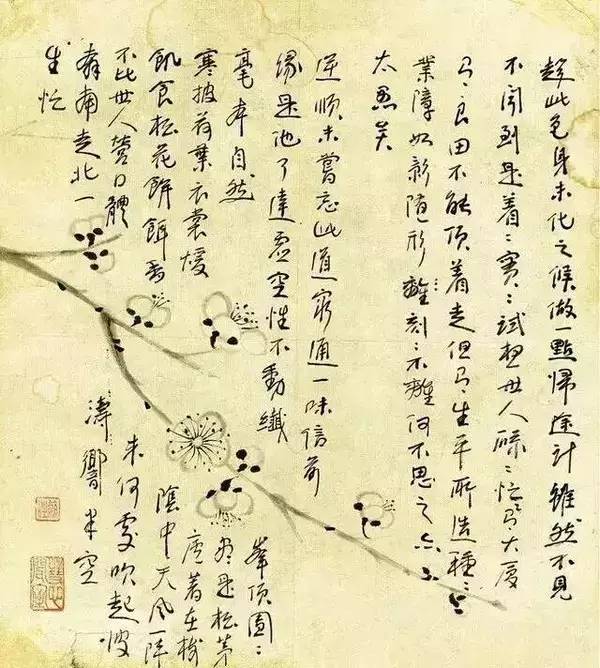 趂此色身未化之候做一點歸途計雖然不見
不聞到是着〻實〻試想世人碌〻忙大廈
良田不能頂着走但生平所造種〻之
業障如影隨形離刻〻不離何不思之亦
太愚矣
逆順未嘗忘此道窮通一味信前
緣是他了達虛空性不動纖
毫本自然
寒披荷葉衣裳煖
飢食松花餅餌香
不比世人營口體
奔南走北一
生忙
峯頂團〻
盡是松茅
廬着在樹
陰中天風一陣
來何處吹起波
濤響半空